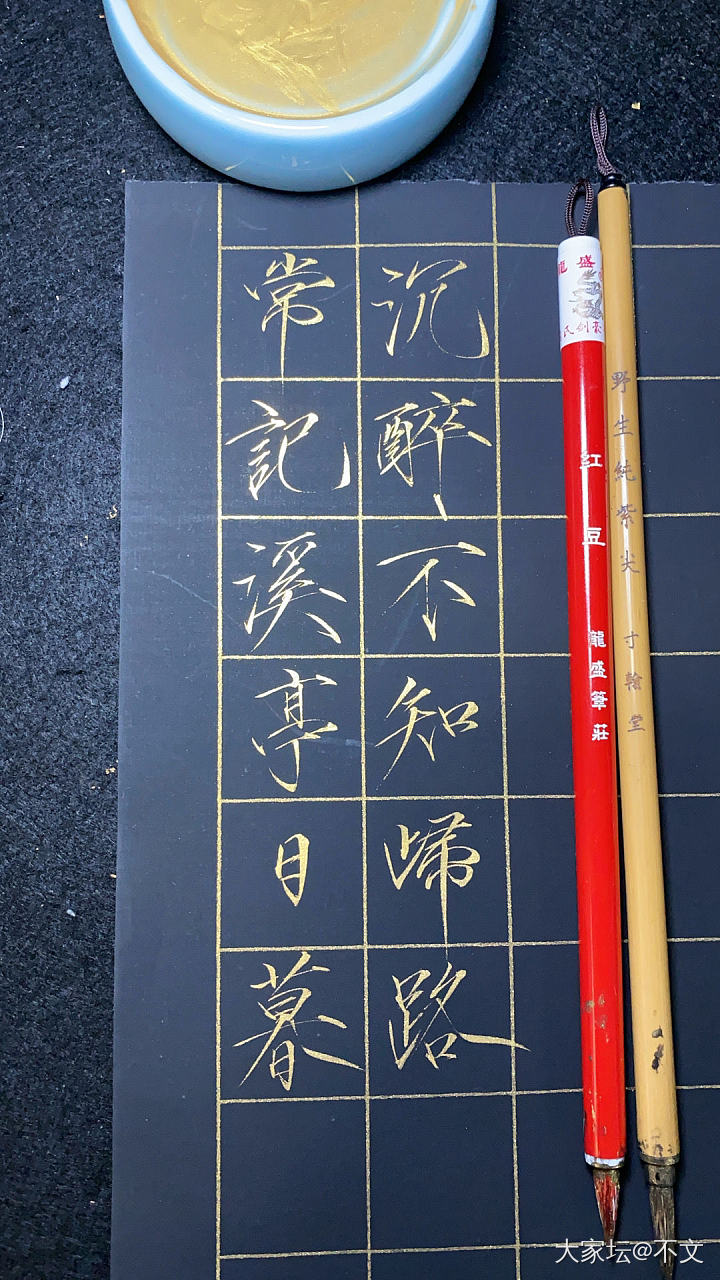 常記溪亭日暮
沉醉不知歸路
龍盛
氏剑豪
红豆 龍盛筆莊
野生純紫尖 寸翰堂
大家坛@不文